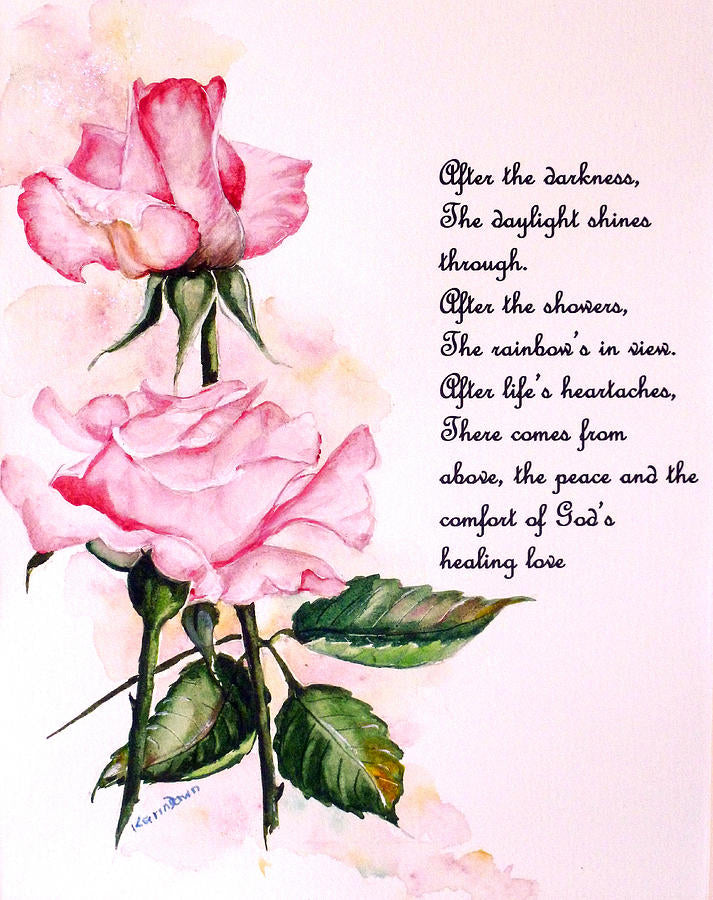 After the darkness,
The daylight shines
through.
After the showers,
The rainbow's in view.
After life's heartaches,
There comes from
above, the peace and the
comfort of God's
healing love
Karin Dawn